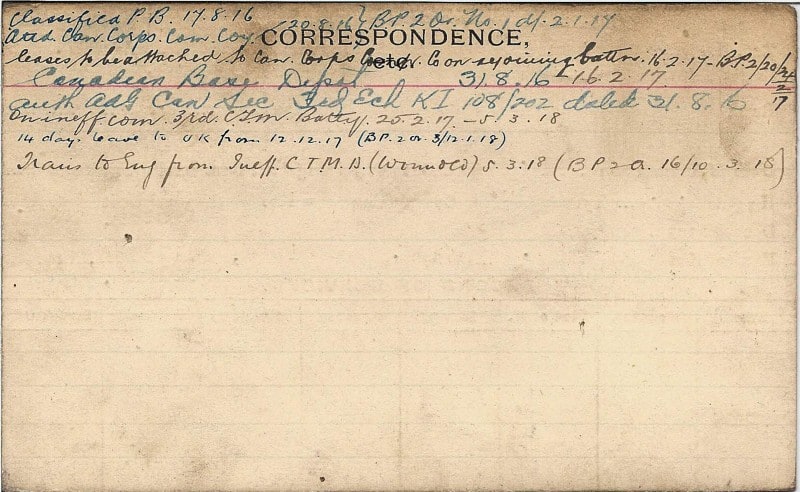 Classified P.B. 17.8.16
Attd. Can. Corps. Com. Coy 20.8.16 } B.P.2 Or. No. 1 d/. 2.1.17
CORRESPONDENCE,
etc.
Ceases to be attached to Can. Corps Co on rejoining battn. 16.2.17 - B.P.2/20/24/2/17
Canadian Base Depot 31.8.16 - 16.2.17
auth AAG Can Sec 3rd Ech K1 108/202 dated 31.8.16
On ineff com. 3rd. C.T.M. Batty. 25.2.17 - 5.3.18
14 day. leave to UK from 12.12.17 (B.P.2 or. 3/12.1.18)
Trans to Eng from Ineff. C T.M.B. (Wounded) 5.3.18 (B P 2 O. 16/10.3.18)